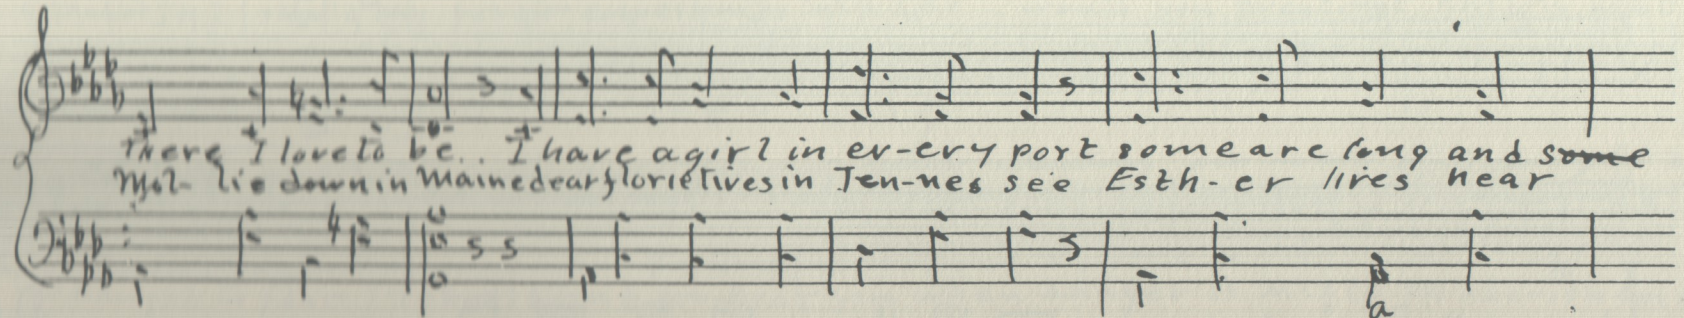 There I love to be.. I have a girl in ev-ery port some are long and some
Mol- lie down in Maine dear florie lives in Ten-nes see Esth-er lives near
a